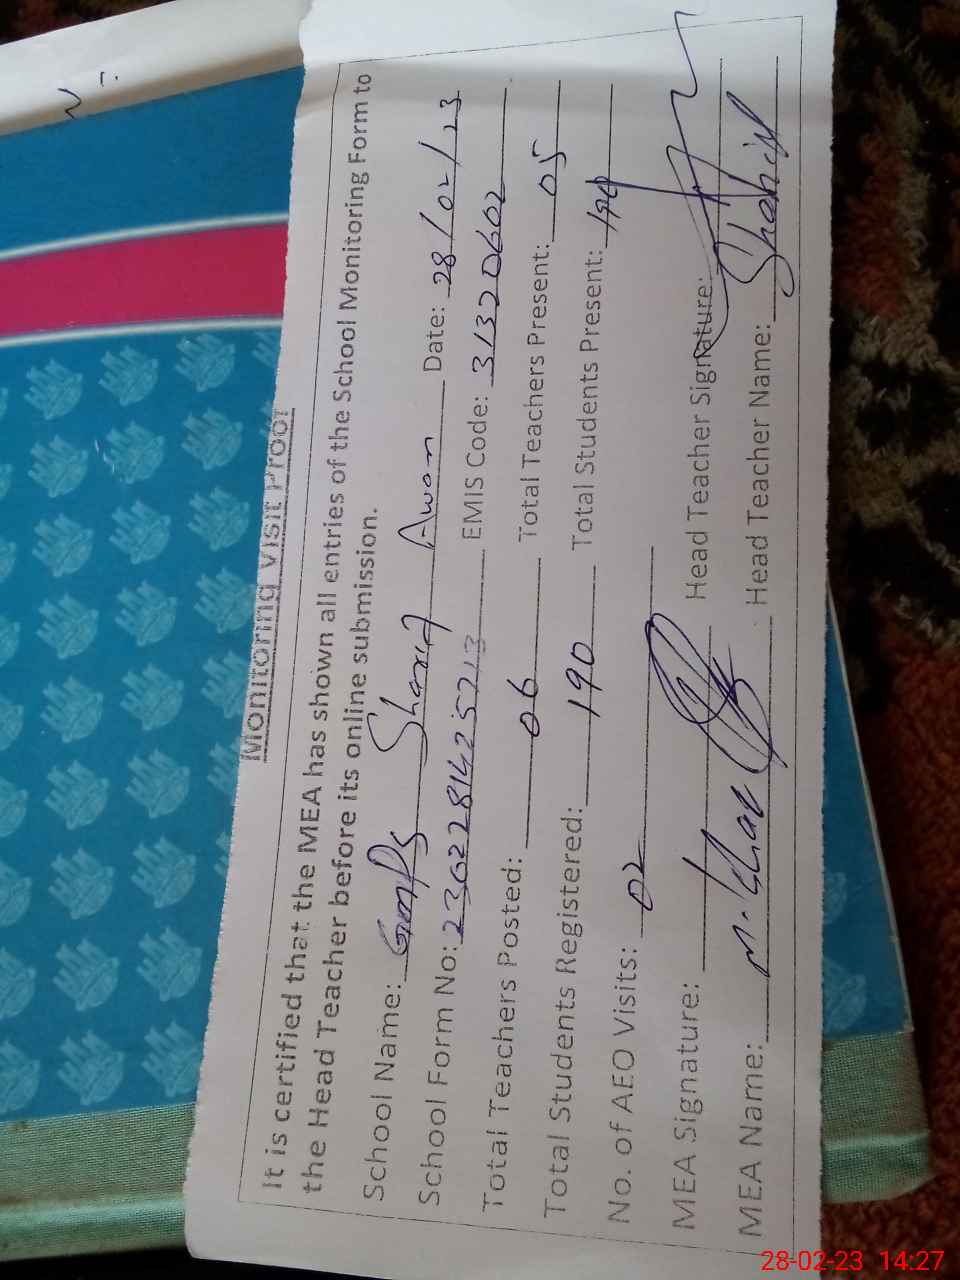 Monitoring Visit Proof
It is certified that the MEA has shown all entries of the School Monitoring Form to
the Head Teacher before its online submission.
School Name: GMPS Sharif Awan Date: 28/02/23
School Form No: 2302281425213 EMIS Code: 31320602
Total Teachers Posted: 06 Total Teachers Present: 05
Total Students Registered: 190 Total Students Present:
No. of AEO Visits: 02
MEA Signature: Head Teacher Signature:
MEA Name: M. Head Teacher Name: Shahid
28-02-23 14:27